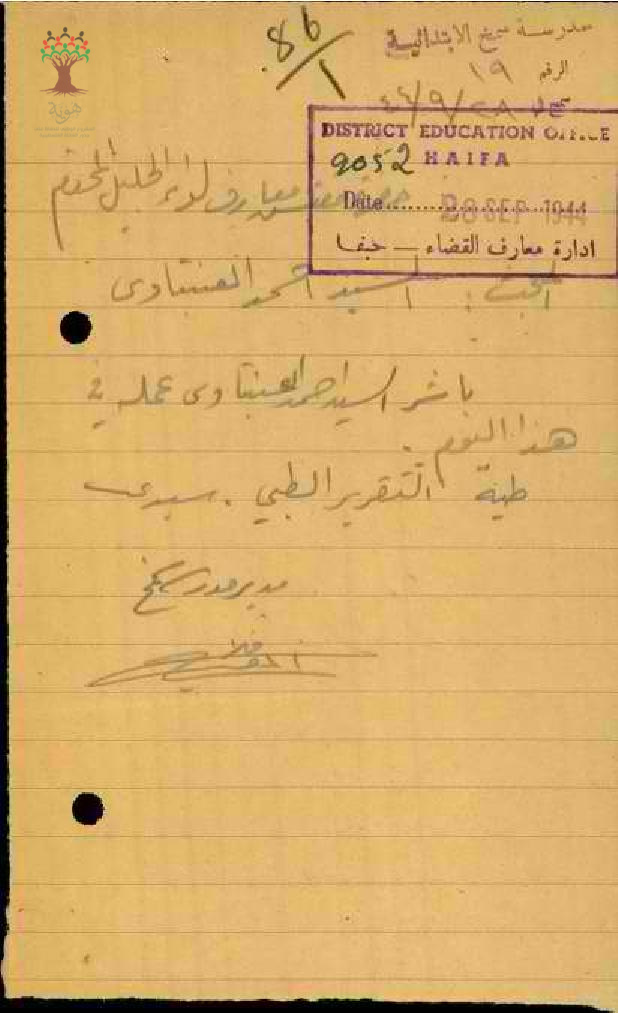 86/1
مدرسة سمخ الابتدائية
الرقم ١٩
سمخ في ٤٤/٩/٢٨
DISTRICT EDUCATION OFFICE
9052 HAIFA
Date 28 SEP 1944
ادارة معارف القضاء – حيفا
حضرة مفتش معارف لواء الجليل المحترم
البحث : السيد احمد العبنتاوى
باشر السيد احمد العبنتاوى عمله في
هذا اليوم .
طيه التقرير الطبي . سيدى
مدير مدرسة سمخ
هوية